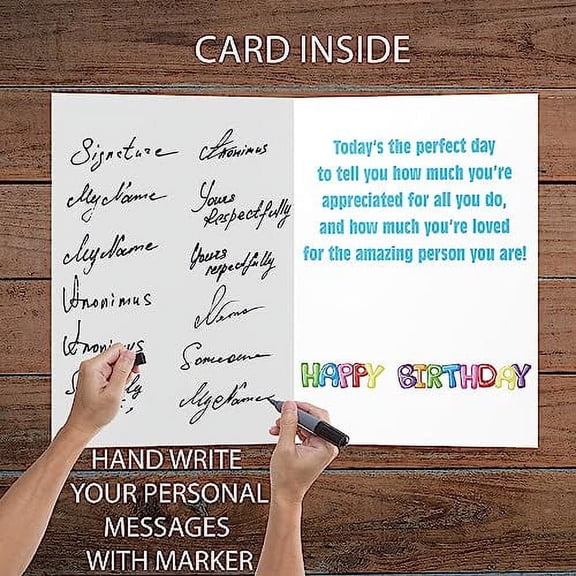 CARD INSIDE
Signature
Anonimus
MyName
Yours
Respectfully
MyName
Yours
respectfully
Anonimus
Name
Anonimus
Someone
MyName
Today's the perfect day
to tell you how much you're
appreciated for all you do,
and how much you're loved
for the amazing person you are!
HAPPY BIRTHDAY
HAND WRITE
YOUR PERSONAL
MESSAGES
WITH MARKER